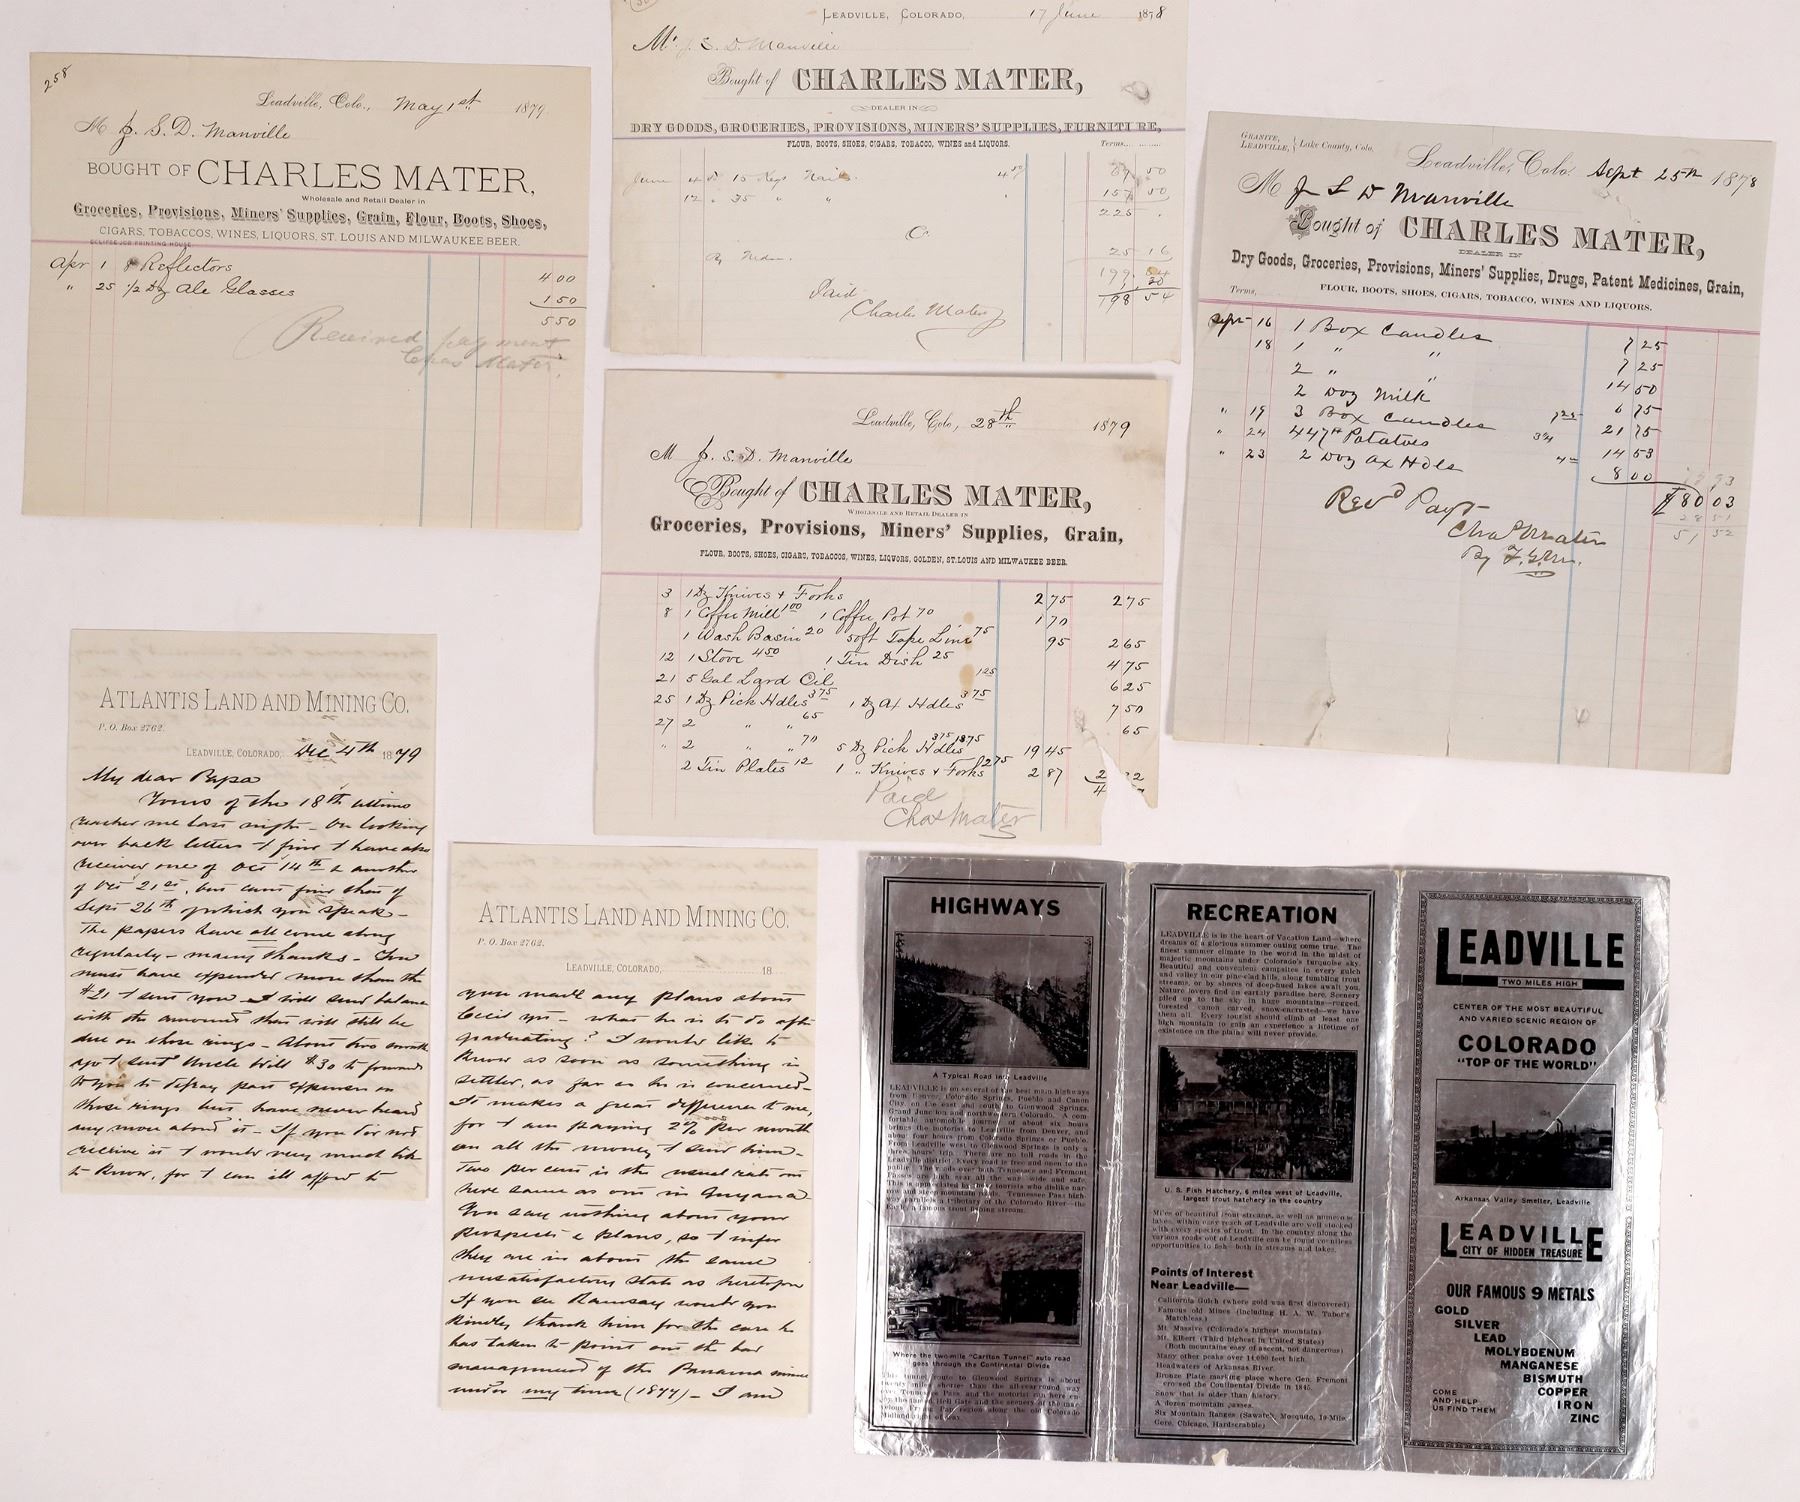 258
Leadville, Colo., May 1st 1879.
M J. S. D. Manville
BOUGHT OF CHARLES MATER,
Wholesale and Retail Dealer in
Groceries, Provisions, Miners' Supplies, Grain, Flour, Boots, Shoes,
CIGARS, TOBACCOS, WINES, LIQUORS, ST. LOUIS AND MILWAUKEE BEER.
ECLIPSE JOB PRINTING HOUSE
Apr 1 8 Reflectors 4 00
" 25 1/2 Dz Ale Glasses 1 50
5 50
Received payment
Chas Mater
LEADVILLE, COLORADO, 17 June 1878
Mr. J. S. D. Manville
Bought of CHARLES MATER,
DEALER IN
DRY GOODS, GROCERIES, PROVISIONS, MINERS' SUPPLIES, FURNITURE,
FLOUR, BOOTS, SHOES, CIGARS, TOBACCO, WINES and LIQUORS. Terms
June 4 15 Kegs Nails 67 50
12 " 35 " " 157 50
225 "
Cr
25 16
199 84
198 54
Paid
Charles Mater
GRANITE, LEADVILLE, } Lake County, Colo.
Leadville, Colo. Sept 25th 1878
M J S D Manville
Bought of CHARLES MATER,
DEALER IN
Dry Goods, Groceries, Provisions, Miners' Supplies, Drugs, Patent Medicines, Grain,
Terms, FLOUR, BOOTS, SHOES, CIGARS, TOBACCO, WINES AND LIQUORS.
Sept 16 1 Box Candles 7 25
18 1 " " 7 25
2 " " 14 50
2 Doz Milk 6 75
" 19 3 Box Candles 7 25 21 75
" 24 447# Potatoes 3 1/4 14 53
" 23 2 Doz Ax Hdls 4 00 8 00
$80 03
28 51
51 52
Recd Payt
Chas Mater
By
Leadville, Colo., 28th 1879
M J. S. D. Manville
Bought of CHARLES MATER,
WHOLESALE AND RETAIL DEALER IN
Groceries, Provisions, Miners' Supplies, Grain,
FLOUR, BOOTS, SHOES, CIGARS, TOBACCOS, WINES, LIQUORS, GOLDEN, ST. LOUIS AND MILWAUKEE BEER.
3 1 Dz Knives & Forks 2 75 2 75
8 1 Coffee Mill 1 00 1 Coffee Pot 70 1 70
1 Wash Basin 20 50ft Tape Line 75 95 2 65
12 1 Stove 4 50 1 Tin Dish 25 4 75
21 5 Gal Lard Oil 1 25 6 25
25 1 Dz Pick Hdles 3 75 1 Dz Ax Hdles 3 75 7 50
27 2 " " 65 65
" 2 " " 70 5 Dz Pick Hdles 3 75 18 75 19 45
2 Tin Plates 12 1 " Knives & Forks 2 75 2 87
Paid
Chas Mater
ATLANTIS LAND AND MINING CO.
P. O. Box 2762.
LEADVILLE, COLORADO, Dec 4th 1879
My dear Papa
Yours of the 18th ultimo
reached me last night – On looking
over back letters I find I have also
received one of Oct 14th & another
of Oct 21st, but cant find that of
Sept 26th of which you speak –
The papers have all come along
regularly – many thanks – You
must have expended more than the
$21 I sent you – I will send balance
with the amount that will still be
due on those rings – About two months
ago I sent Uncle Will $30 to forward
to you to defray part expenses on
those rings but have never heard
any more about it – If you did not
receive it I would very much like
to know, for I can ill afford to
ATLANTIS LAND AND MINING CO.
P. O. Box 2762.
LEADVILLE, COLORADO, 18
you made any plans about
Cecil yet – what he is to do after
graduating? I would like to
know as soon as something is
settled, as far as he is concerned –
It makes a great difference to me,
for I am paying 2% per month
on all the money I send him –
Two per cent is the usual rate out
here same as out in Guyana –
You say nothing about your
prospects & plans, so I infer
they are in about the same
unsatisfactory state as heretofore
If you see Ramsay would you
kindly thank him for the care he
has taken to point out the bad
management of the Panama mine
under my time (1877) – I am
HIGHWAYS
A Typical Road into Leadville
LEADVILLE is on several of the best main highways
from Denver, Colorado Springs, Pueblo and Canon
City, on the east and south to Glenwood Springs,
Grand Junction and northwestern Colorado. A com-
fortable automobile journey of about six hours
brings the motorist to Leadville from Denver, and
about four hours from Colorado Springs or Pueblo.
From Leadville west to Glenwood Springs is only a
three hours' trip. There are no toll roads in the
Leadville district. Every road is free and open to the
Where the two-mile "Carlton Tunnel" auto road
goes through the Continental Divide
RECREATION
LEADVILLE is in the heart of Vacation Land—where
dreams of a glorious summer outing come true. The
finest summer climate in the world in the midst of
majestic mountains under Colorado's turquoise sky.
Beautiful and convenient campsites in every gulch
and valley in our pine-clad hills, along tumbling trout
streams, or by shores of deep-hued lakes await you.
Nature lovers find an earthly paradise here. Scenery
piled up to the sky in huge mountains—rugged,
forested, canon carved, snow-encrusted—we have
them all. Every tourist should climb at least one
high mountain to gain an experience a lifetime of
existence on the plains will never provide.
U. S. Fish Hatchery, 6 miles west of Leadville,
largest trout hatchery in the country
Miles of beautiful trout streams, as well as numerous
lakes, within easy reach of Leadville are well stocked
with every species of trout. In the country along the
various roads out of Leadville can be found countless
opportunities to fish—both in streams and lakes.
Points of Interest
Near Leadville—
California Gulch (where gold was first discovered)
Famous old Mines (including H. A. W. Tabor's
Matchless.)
Mt. Massive (Colorado's highest mountain)
Mt. Elbert (Third highest in United States)
(Both mountains easy of ascent, not dangerous)
Many other peaks over 14,000 feet high.
Headwaters of Arkansas River.
Bronze Plate marking place where Gen. Fremont
crossed the Continental Divide in 1845.
Snow that is older than history.
A dozen mountain passes.
Six Mountain Ranges (Sawatch, Mosquito, 10-Mile,
Gore, Chicago, Hardscrabble)
LEADVILLE
TWO MILES HIGH
CENTER OF THE MOST BEAUTIFUL
AND VARIED SCENIC REGION OF
COLORADO
"TOP OF THE WORLD"
Arkansas Valley Smelter, Leadville
LEADVILLE
CITY OF HIDDEN TREASURE
OUR FAMOUS 9 METALS
GOLD
SILVER
LEAD
MOLYBDENUM
MANGANESE
BISMUTH
COPPER
IRON
ZINC
COME
AND HELP
US FIND THEM